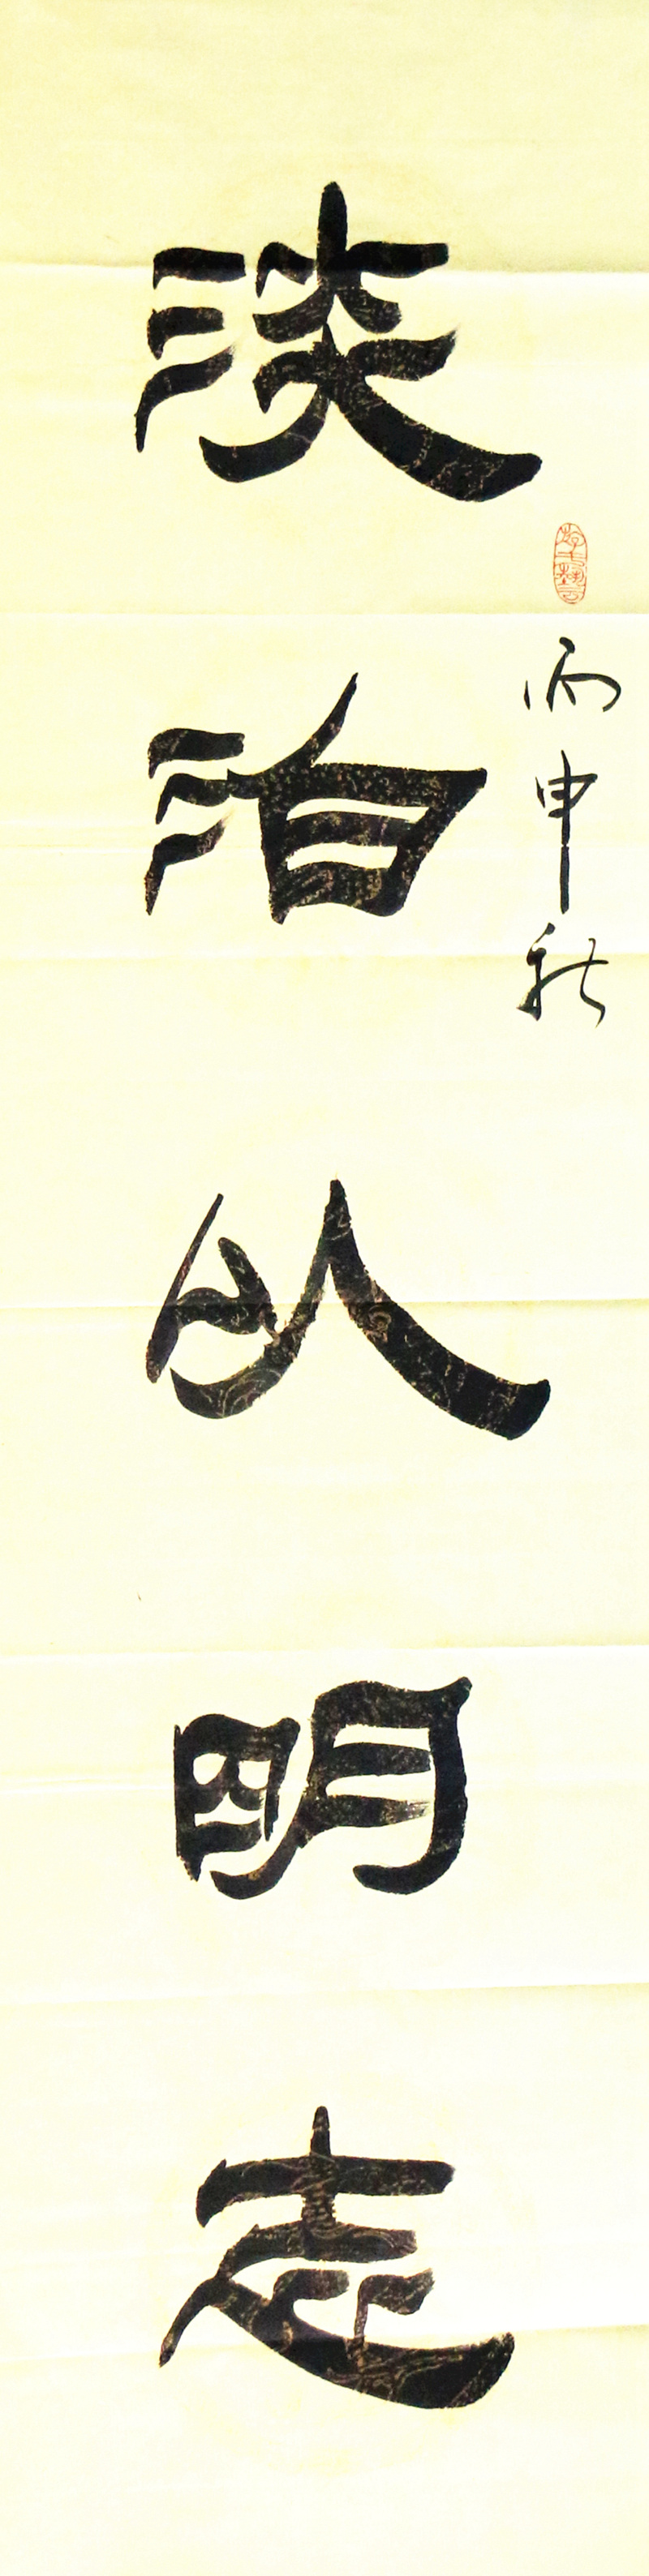 丙申秋
淡泊以明志